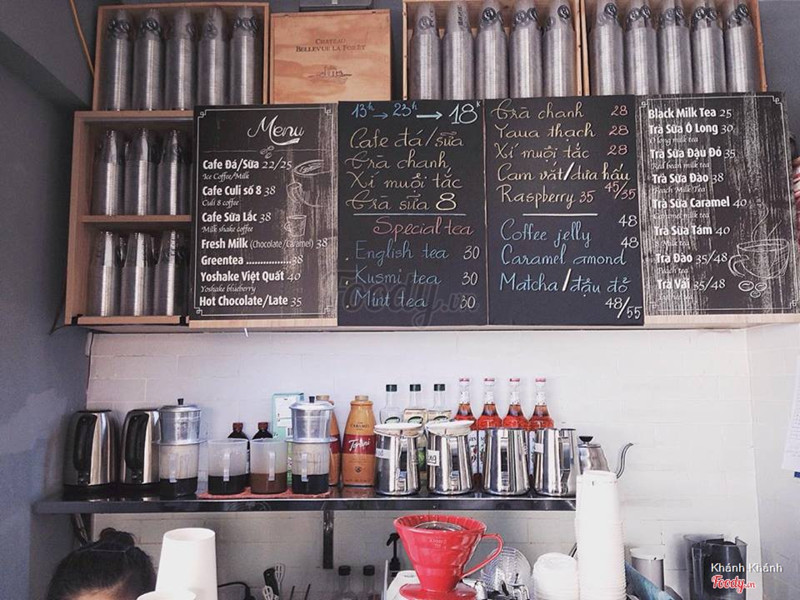 CHATEAU
BELLEVUE DE LA FORÊT
Menu
Cafe Đá/Sữa 22/25
Ice Coffee/Milk
Cafe Culi số 8 38
Culi 8 coffee
Cafe Sữa Lắc 38
Milk shake coffee
Fresh Milk (Chocolate/Caramel) 38
Greentea ...............38
Yoshake Việt Quất 40
Yoshake blueberry
Hot Chocolate/Late 35
13h → 23h → 18K
Cafe đá/sữa
Trà chanh
Xí muội tắc
Trà sữa 8
Special tea
English tea 30
Kusmi tea 30
Mint tea 30
Trà chanh 28
Yaua thạch 28
Xí muội tắc 28
Cam vắt/dưa hấu 45/35
Raspberry 35
Coffee jelly 48
Caramel amond 48
Matcha/đậu đỏ 48/55
Black Milk Tea 25
Trà Sữa Ô Long 30
O long milk tea
Trà Sữa Đậu Đỏ 35
Red bean milk tea
Trà Sữa Đào 38
Peach Milk Tea
Trà Sữa Caramel 40
Caramel milk tea
Trà Sữa Tám 40
8 Milk Tea
Trà Đào 35/48
Peach tea
Trà Vải 35/48
Foody.vn
Torani
Khánh Khánh
Foody.vn